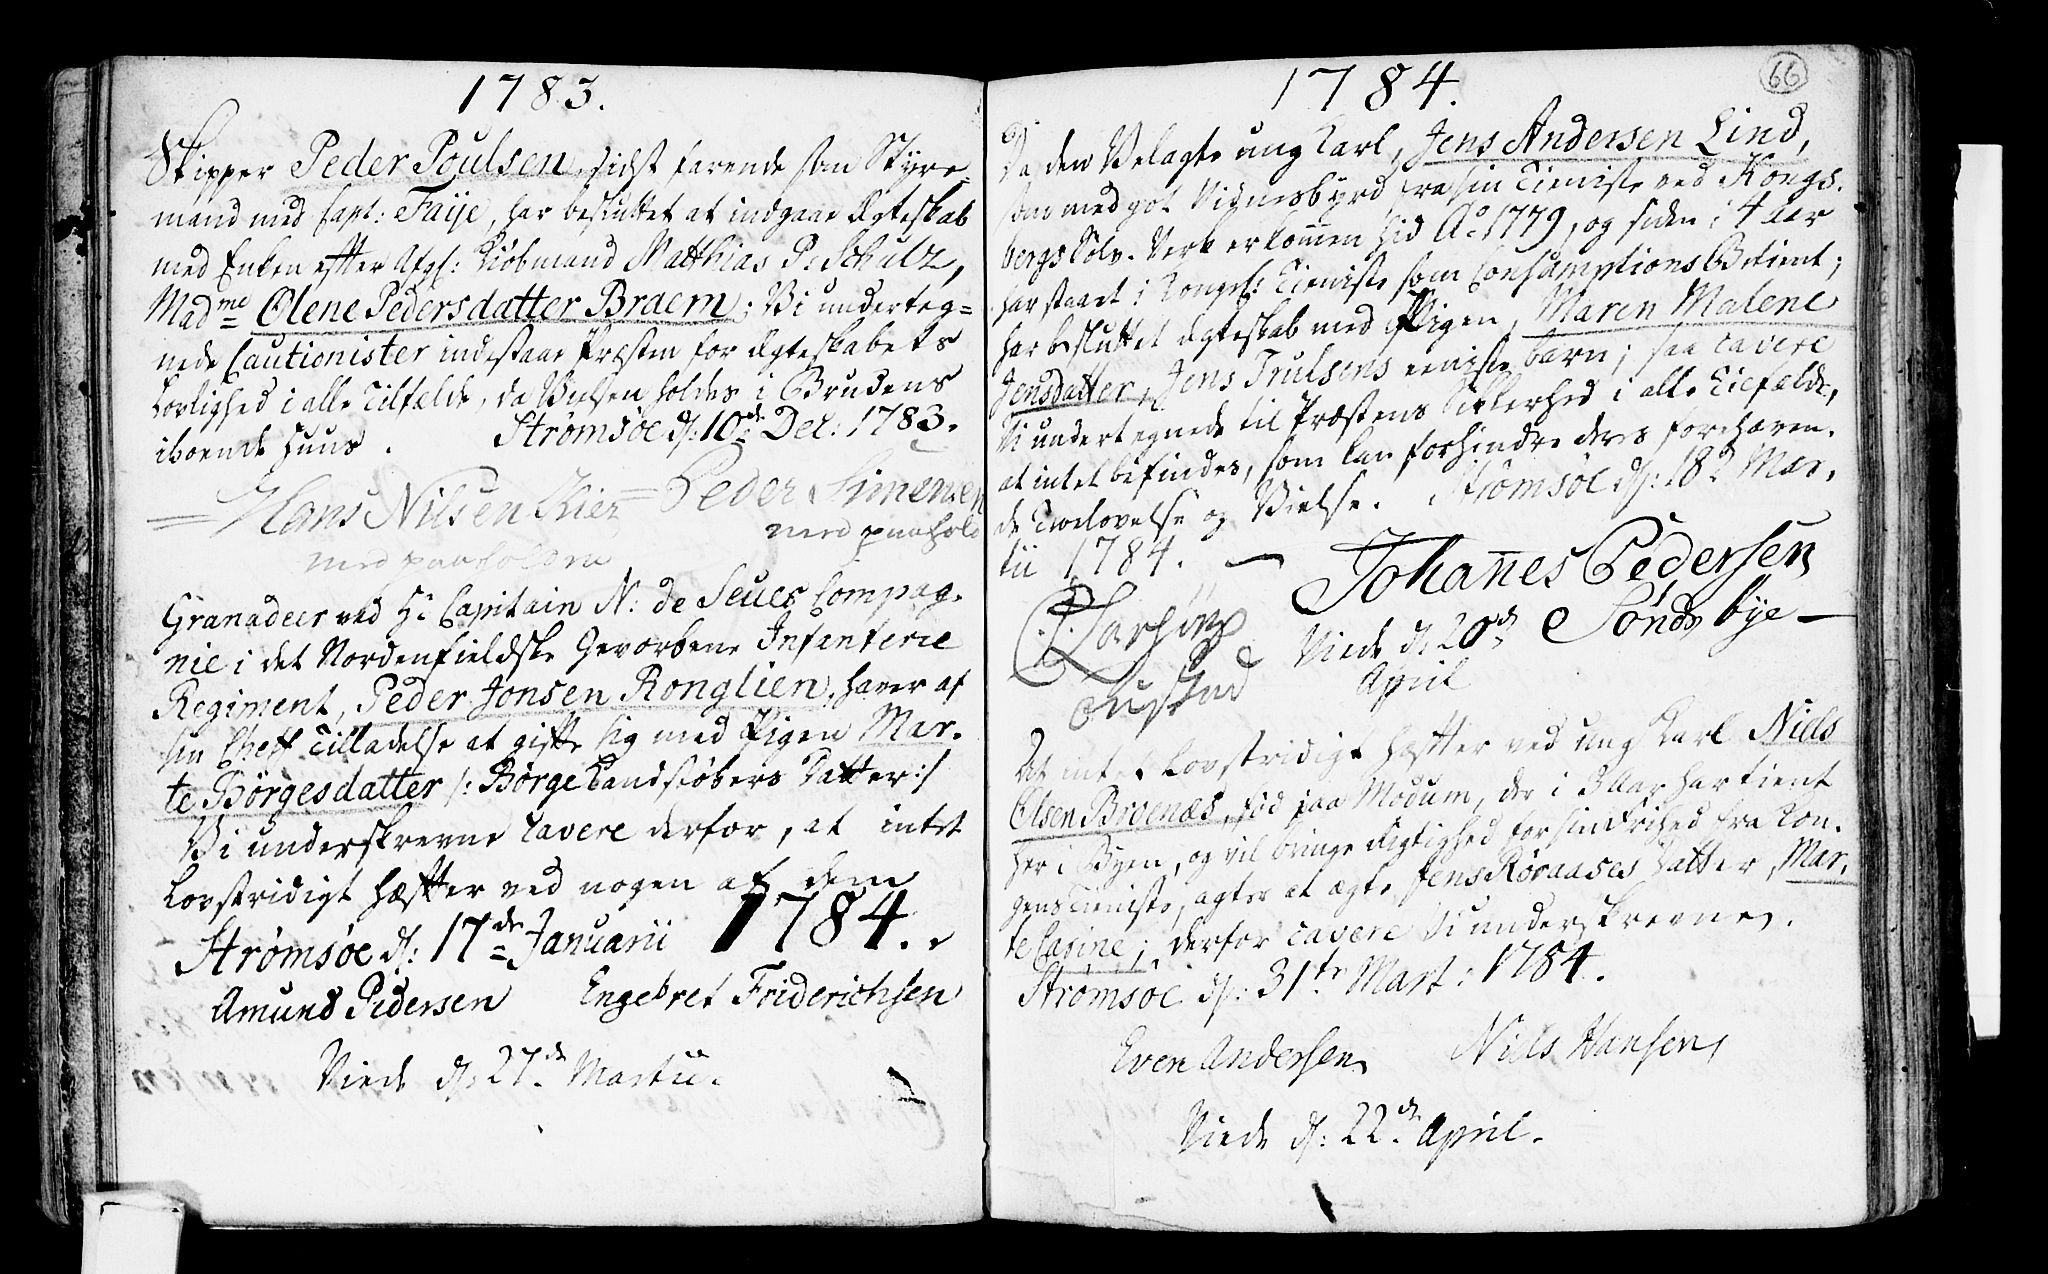 1783.
Skipper Peder Poulsen, sidst farende som Styre-
mand med Capt: Faije, har besluttet at indgaae Ægteskab
med Enken efter Afgl: Kiöbmand Matthias P. Schultz,
Madme Olene Pedersdatter Braem; Vi underteg=
nede Cautionister indestaae Præsten for Ægteskabets
Lovlighed i alle Tilfælde, da Vielsen holdes i Brudens
iboende Huus. Strømsøe d: 10de Dec: 1783.
Hans Nilsen Kier = Peder Simensen
med paahold
med paaholden
Granadeer ved H: Capitain N: de Seues Compag-
nie i det Nordenfieldske Gevorbene Infanterie
Regiment, Peder Jonsen Ronglien, haver af
sin Cheff Tilladelse at gifte sig med Pigen Mar-
te Börgesdatter /: Börge Landstöbers Datter:/
Vi underskrevne cavere derfor, at intet
Lovstridigt hæfter ved nogen af dem
Strømsøe d: 17de Januarii 1784.
Amund Pedersen Engebret Friderichsen
Viede d: 27de Martii.
66
1784.
Da den Velagte ung Karl, Jens Andersen Lind,
som med got Vidnesbyrd fra sin Tieniste ved Kongs-
bergs Sölv-Verk er kommen hid Ao 1779, og siden i 4 aar
har staaet i Kongel: Tieniste som Consumptions Betient;
har besluttet Ægteskab med Pigen, Maren Malene
Jensdatter, Jens Trulsens eeniste barn; saa cavere
Vi undertegnede til Præstens Sikkerhed i alle Tilfælde,
at intet befindes, som kan forhindre deres forehaven-
de Trolovelse og Vielse. Strømsöe d: 18de Mar-
tii 1784. Johanes Pedersen
Sönds bye
Viede d: 20de
April
At intet Lovstridigt hæfter ved ung Karl Niels
Olsen Broenæs, föd paa Modum, der i 3 Aar har tient
her i Byen, og vil bringe Rigtighed for sin Frihed fra Kon-
gens Tieniste, agter at ægte Jens Röraases Datter, Mar-
te Carine; derfor cavere Vi underskrevne.
Strømsöe d: 31te Mart: 1784.
Even Andersen Niels Hansen
Viede d: 22de April.